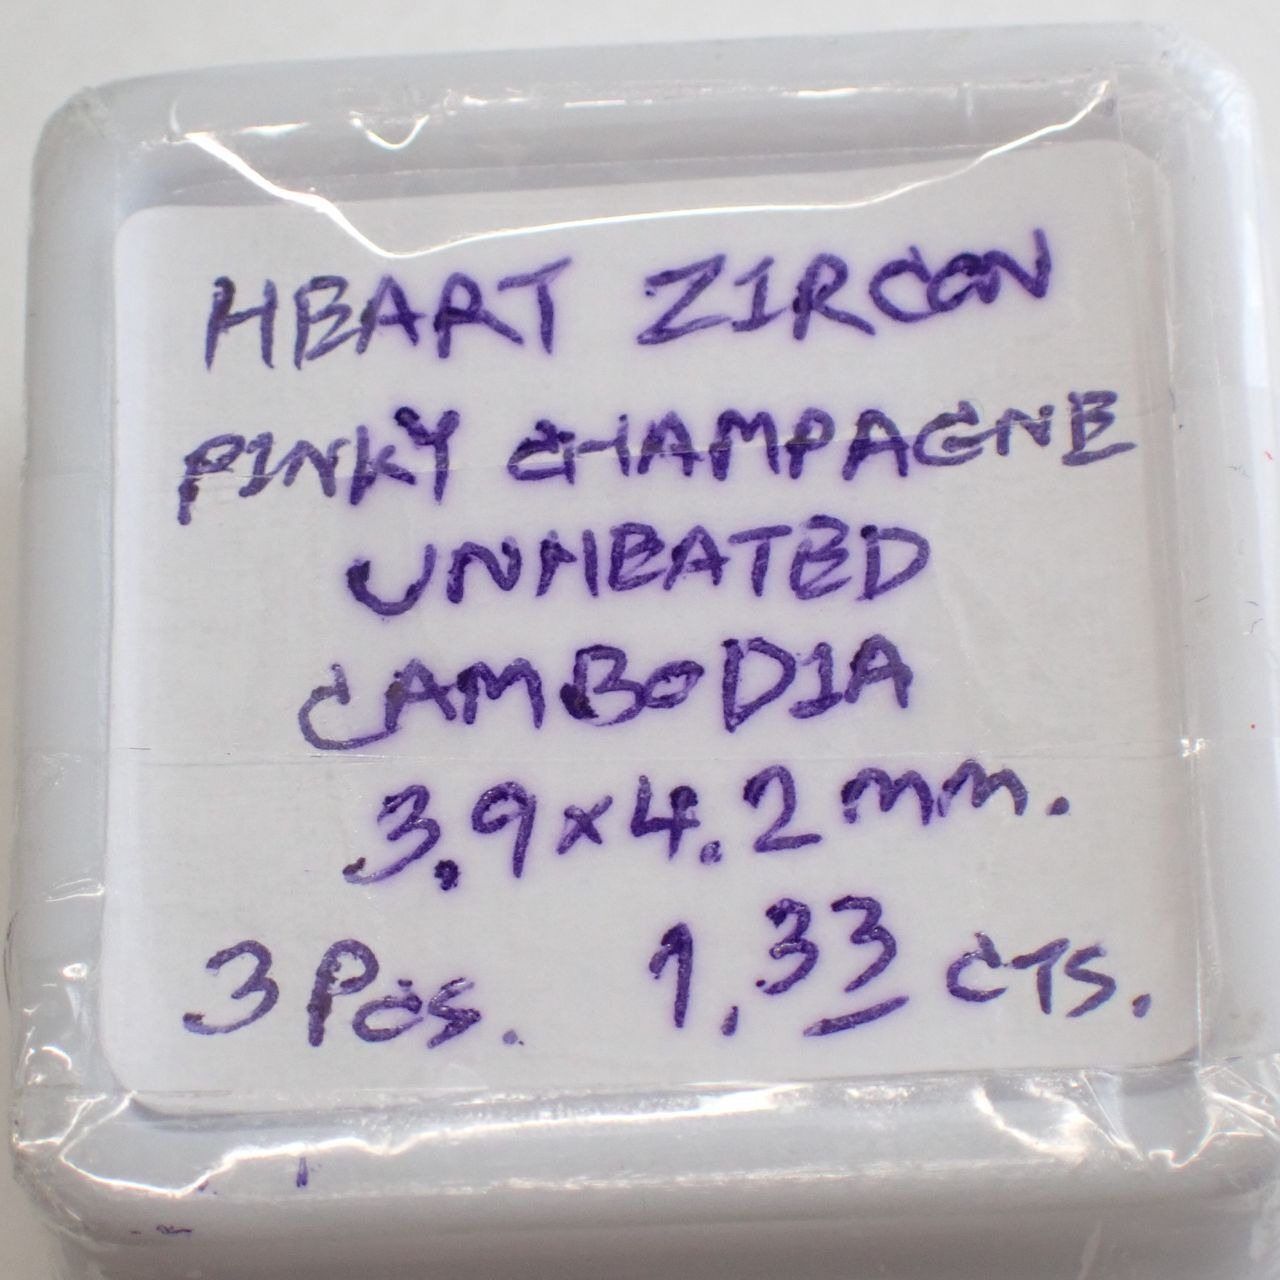 HEART ZIRCON
PINKY CHAMPAGNE
UNHEATED
CAMBODIA
3.9x4.2mm.
3 Pcs. 1.33 cts.